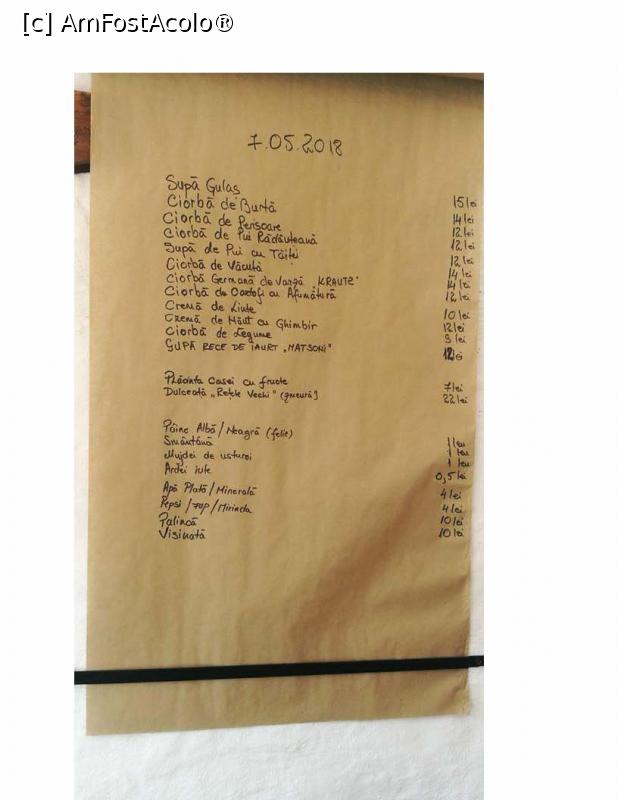 [c] AmFostAcolo®
7.05.2018
Supă Gulaș 15 lei
Ciorbă de Burtă 14 lei
Ciorbă de Perisoare 12 lei
Ciorbă de Pui Rădăuțeană 12 lei
Supă de Pui cu Tăiței 12 lei
Ciorbă de Văcuță 14 lei
Ciorbă Germană de Varză KRAUTZ" 14 lei
Ciorbă de Cartofi cu Afumătură 12 lei
Cremă de Linte 10 lei
Cremă de Năut cu Ghimbir 12 lei
Ciorbă de Legume 9 lei
SUPĂ RECE DE IAURT „MATSONI" 12 lei
Plăcinta Casei cu fructe 7 lei
Dulceată „Rețete Vechi" 22 lei
Pâine Albă/Neagră (felie) 1 leu
Smântână 1 leu
Mujdei de usturoi 1 leu
Ardei iute 0,5 lei
Apă Plată/Minerală 4 lei
Pepsi/7up/Mirinda 4 lei
Palincă 10 lei
Vișinată 10 lei